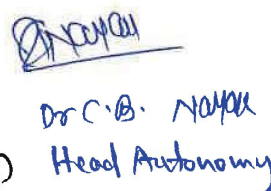 Nayak
Dr C.B. Nayak
Head Autonomy